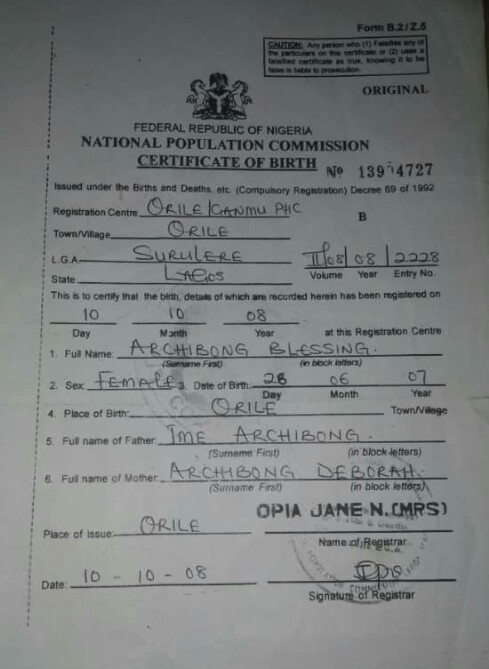 Form B.2/Z.5
CAUTION: Any person who (1) Falsifies any of
the particulars on this certificate or (2) uses a
falsified certificate as true, knowing it to be
false is liable to prosecution.
ORIGINAL
FEDERAL REPUBLIC OF NIGERIA
NATIONAL POPULATION COMMISSION
CERTIFICATE OF BIRTH No 4727
Issued under the Births and Deaths. etc. (Compulsory Registration) Decree 69 of 1992
Registration Centre ORILE/GANMU PHC
B
Town/Village ORILE
L.G.A. SURULERE II/08/ 08 /2228
Volume Year Entry No.
State LAGOS
This is to certify that the birth, details of which are recorded herein has been registered on
10 10 08
Day Month Year at this Registration Centre
1. Full Name: ARCHIBONG BLESSING.
(Surname First) (in block letters)
2. Sex: FEMALE 3. Date of Birth: 28 06 07
Day Month Year
4. Place of Birth: ORILE Town/Village
5. Full name of Father: IME ARCHIBONG.
(Surname First) (in block letters)
6. Full name of Mother: ARCHIBONG DEBORAH.
(Surname First) (in block letters)
OPIA JANE N. (MRS)
Place of Issue: ORILE
Name of Registrar
Date: 10 - 10 - 08
Signature of Registrar